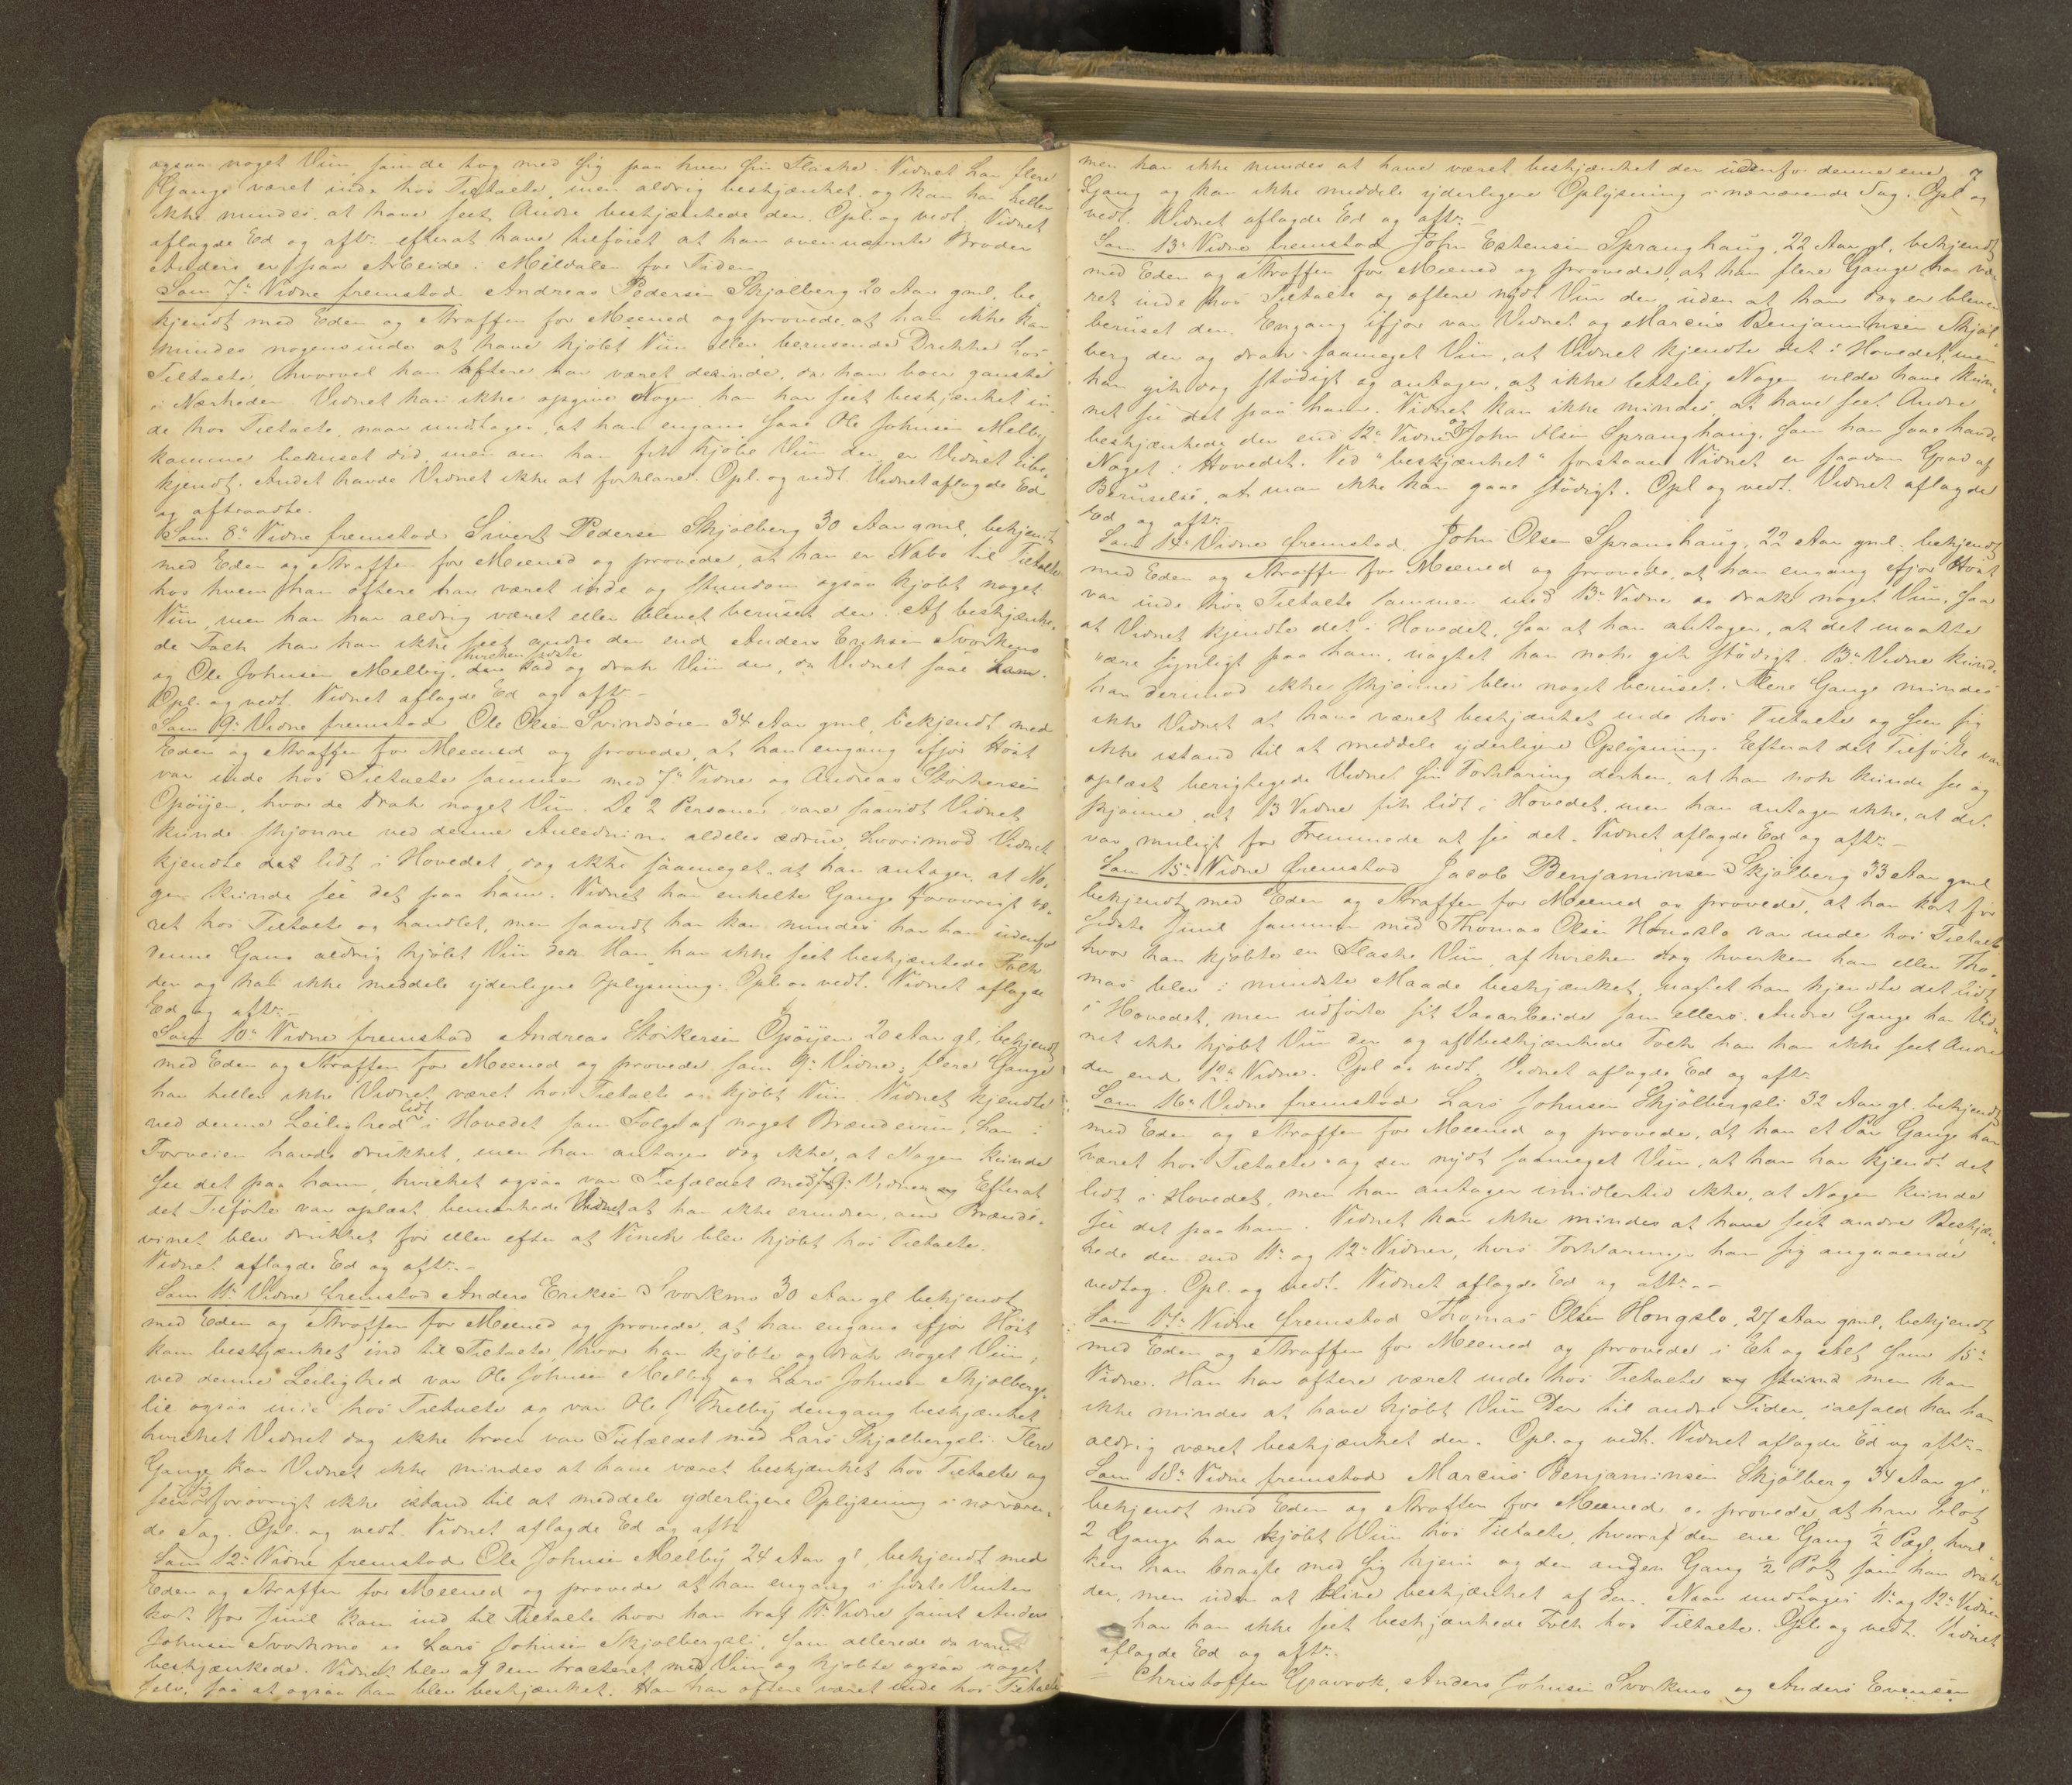 ogsaa noget Viin, som de tog med sig paa hver sin Flaske. Vidnet har flere
Gange været inde hos Tiltalte, men aldrig beskjænket, og kan han heller
ikke mindes, at have seet Andre beskjænkede der. Opl. og vedt. Vidnet
aflagde Ed og aftr. efterat have tilføiet at han ovennævnte Broder
Anders er paa Arbeide i Meldalen for Tiden.
Som 7de Vidne fremstod Andreas Pedersen Skjølberg 20 Aar gml. be-
kjendt med Eden og Straffen for Meened og provede, at han ikke kan
mindes nogensinde at have kjøbt Viin eller berusende Drikke hos
Tiltalte, hvorvel han oftere har været derinde, da han boer ganske
i Nærheden. Vidnet kan ikke opgive Nogen han har seet beskjænket in-
de hos Tiltalte, naar undtages, at han engang saae Ole Johnsen Melby
komme beruset did, men om han fik kjøbe Viin der, er Vidnet ube-
kjendt. Andet havde Vidnet ikke at forklare. Opl. og vedt. Vidnet aflagde Ed
og aftraadte.
Som 8de Vidne fremstod Sivert Pedersen Skjølberg 30 Aar gml, bekjendt
med Eden og Straffen for Meened og provede, at han er Nabo til Tiltalte
hos hvem han oftere har været inde og stundom ogsaa kjøbt noget
Viin, men han har aldrig været eller blevet beruset der. Af beskjænke-
de Folk har han ikke seet andre der end Anders Eriksen Svorkmo
og Ole Johnsen Melby, hvilken sidste sad og drak Viin der, da Vidnet saae ham.
Opl. og vedt. Vidnet aflagde Ed og aftr. –
Som 9de Vidne fremstod Ole Olsen Svindsøren 34 Aar gml, bekjendt med
Eden og Straffen for Meened og provede, at han engang ifjor Høst
var inde hos Tiltalte sammen med 7de Vidne og Andreas Størkersen
Opøijen, hvor de drak noget Viin. De 2 Personer vare saavidt Vidnet
kunde skjønne ved denne Anledning aldeles ædrue, hvorimod Vidnet
kjendte det lidt i Hovedet, dog ikke saameget, at han antager, at No-
gen kunde see det paa ham. Vidnet har enkelte Gange forøvrigt væ-
ret hos Tiltalte og handlet, men saavidt han kan mindes har han udenfor
denne Gang aldrig kjøbt Viin der. Han har ikke seet beskjænkede Folk
der og kan ikke meddele yderligere Oplysning. Opl. og vedt. Vidnet aflagde
Ed og aftr. –
Som 10de Vidne fremstod Andreas Størkersen Opøijen 20 Aar gl, bekjendt
med Eden og Straffen for Meened og provede som 9de Vidne; flere Gange
har heller ikke Vidnet været hos Tiltalte og kjøbt Viin. Vidnet kjendte
ved denne Leilighed lidt i Hovedet som Følge af noget Brændeviin, han i
Forveien havde drukket, men han antager dog ikke, at Nogen kunde
see det paa ham, hvilket ogsaa var Tilfældet med 7de & 9de Vidner. Efterat
det Tilførte var oplæst, bemærkede Vidnet at han ikke erindrer, om Brænde-
vinet blev drukket før eller efter at Vinen blev kjøbt hos Tiltalte.
Vidnet aflagde Ed og aftr. –
Som 11te Vidne fremstod Anders Eriksen Svorkmo 30 Aar gl bekjendt
med Eden og Straffen for Meened og provede, at han engang ifjor Høst
kom beskjænket ind til Tiltalte, hvor han kjøbte og drak noget Viin;
ved denne Leilighed var Ole Johnsen Melby og Lars Johnsen Skjølbergs-
lie ogsaa inde hos Tiltalte og var Ole J. Melby dengang beskjænket,
hvilket Vidnet dog ikke troer var Tilfældet med Lars Skjølbergsli. Flere
Gange kan Vidnet ikke mindes at have været beskjænket hos Tiltalte og
seer sig forøvrigt ikke istand til at meddele yderligere Oplysning i nærværen-
de Sag. Opl. og vedt. Vidnet aflagde Ed og aftr.
Som 12te Vidne fremstod Ole Johnsen Melby 24 Aar gl, bekjendt med
Eden og Straffen for Meened og provede at han engang i sidste Vinter
kort før Juul kom ind til Tiltalte hvor han traf 11te Vidne samt Anders
Johnsen Svorkmo og Lars Johnsen Skjølbergsli, som allerede da vare
beskjænkede. Vidnet blev af dem tracteret med Viin og kjøbte ogsaa noget
selv, saa at ogsaa han blev beskjænket. Han har oftere været inde hos Tiltalte
7
men kan ikke mindes at have været beskjænket der udenfor denne ene
Gang og kan ikke meddele yderligere Oplysning i nærværende Sag. Opl og
vedt. Vidnet aflagde Ed og aftr. –
Som 13de Vidne fremstod John Estensen Spranghaug, 22 Aar gl, bekjendt
med Eden og Straffen for Meened og provede, at han flere Gange har væ-
ret inde hos Tiltalte og oftere nydt Viin der, uden at han dog er bleven
beruset der. Engang ifjor var Vidnet og Marcus Benjaminsen Skjøl-
berg der og drak saameget Viin, at Vidnet kjendte det i Hovedet, men
han gik dog stødigt og antager, at ikke lettelig Nogen vilde have kun-
net see det paa ham. Vidnet kan ikke mindes at have seet Andre
beskjænkede der end 12te Vidne og John Olsen Spranghaug, som han saae havde
Noget i Hovedet. Ved "beskjænket" forstaaer Vidnet en saadan Grad af
Beruselse, at man ikke kan gaae stødigt. Opl og vedt. Vidnet aflagde
Ed og aftr. –
Som 14de Vidne fremstod John Olsen Spranghaug, 22 Aar gml. bekjendt
med Eden og Straffen for Meened og provede, at han engang ifjor Høst
var inde hos Tiltalte sammen med 13de Vidne og drak noget Viin, saa
at Vidnet kjendte det i Hovedet, saa at han antager, at det maatte
være synligt paa ham, uagtet han nok gik stødigt. 13de Vidne kunde
han derimod ikke skjønne blev noget beruset. Flere Gange mindes
ikke Vidnet at have været beskjænket inde hos Tiltalte og seer sig
ikke istand til at meddele yderligere Oplysning. Efterat det Tilførte var
oplæst berigtigede Vidnet sin Forklaring derhen, at han nok kunde see og
skjønne, at 13 Vidne fik lidt i Hovedet, men han antager ikke, at det
var muligt for Fremmede at see det. Vidnet aflagde Ed og aftr. –
Som 15de Vidne fremstod Jacob Benjaminsen Skjølberg 33 Aar gml
bekjendt med Eden og Straffen for Meened og provede, at han kort før
sidste Juul sammen med Thomas Olsen Hongslo var inde hos Tiltalte
hvor han kjøbte en Flaske Viin, af hvilken dog hverken han eller Tho-
mas blev i mindste Maade beskjænket, uagtet han kjendte det lidt
i Hovedet, men udførte sit Dagarbeide som ellers. Andre Gange har Vid-
net ikke kjøbt Viin der og af beskjænkede Folk har han ikke seet Andre
der end 12te Vidne. Opl og vedt. Vidnet aflagde Ed og aftr.
Som 16de Vidne fremstod Lars Johnsen Skjølbergsli 32 Aar gl. bekjendt
med Eden og Straffen for Meened og provede, at han et Par Gange har
været hos Tiltalte og der nydt saameget Viin, at han har kjendt det
lidt i Hovedet, men han antager imidlertid ikke, at Nogen kunde
see det paa ham. Vidnet kan ikke mindes at have seet andre Beskjæn-
kede der end 11te og 12te Vidner, hvis Forklaringer han sig angaaende
vedtog. Opl. og vedt. Vidnet aflagde Ed og aftr. –
Som 17de Vidne fremstod Thomas Olsen Hongslo, 27 Aar gml, bekjendt
med Eden og Straffen for Meened og provede i Et og Alt som 15de
Vidne. Han har oftere været inde hos Tiltalte men kan
ikke mindes at have kjøbt Viin der til andre Tider, ialfald har han
aldrig været beskjænket der. Opl. og vedt. Vidnet aflagde Ed og aftr. –
Som 18de Vidne fremstod Marcus Benjaminsen Skjølberg 34 Aar gl
bekjendt med Eden og Straffen for Meened og provede at han blot
2 Gange har kjøbt Viin hos Tiltalte, hvoraf den ene Gang ½ Pægl, hvil-
ken han bragte med sig hjem og den anden Gang ½ Pot som han drak
der, men uden at blive beskjænket af den. Naar undtages 11te og 12te Vidner
har han ikke seet beskjænkede Folk hos Tiltalte. Opl. og vedt. Vidnet
aflagde Ed og aftr.
Christoffer Gravrok, Anders Johnsen Svorkmo og Anders Evensen